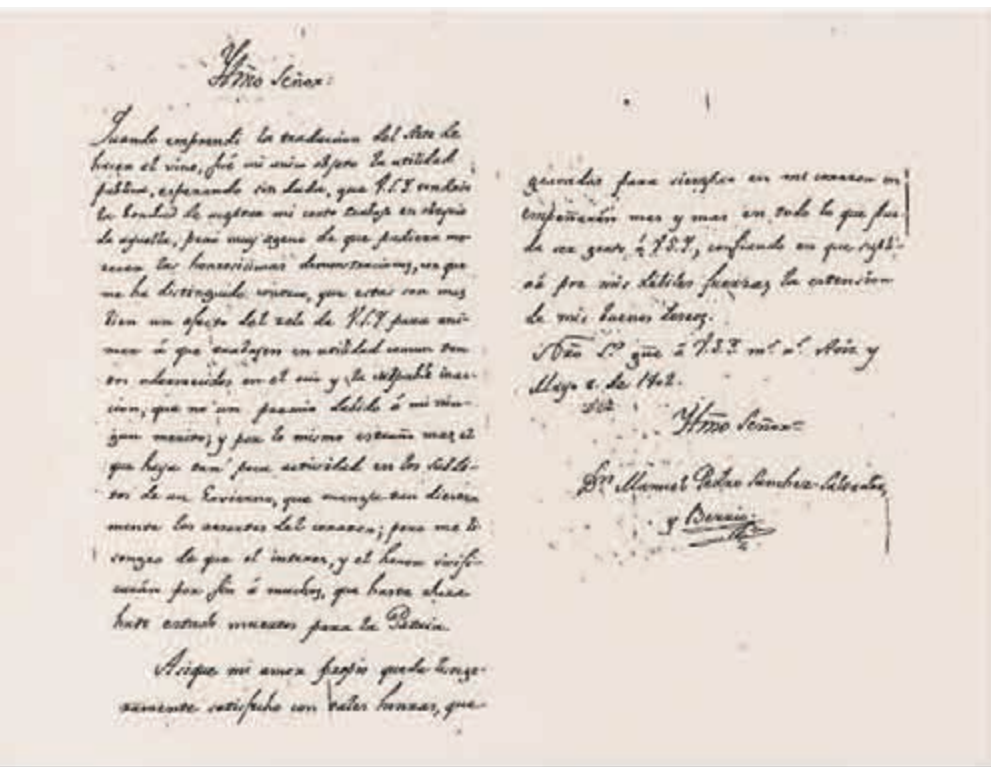 Ytmo Señor:
Quando emprendí la traducion del Arte de
hacer el vino, fué mi unico objeto la utilidad
publica, esperando sin duda, que V.S.Y. tendria
la bondad de mi corto trabajo en obsequio
de aquella, pero muy ageno de que pudiera me-
recer las honrosisimas demonstraciones, con que
me ha distinguido; que estas son mas
bien un efecto del zelo de V.S.Y. para ani-
mar á que trabajen en utilidad comun tan-
tos adormecidos en el ocio y la culpable inac-
cion, que no un premio debido á mi nin-
gun merito; y por lo mismo estraño mas el
que haya tan poca actividad en los subdi-
tos de un Govierno, que maneja tan diestra-
mente los resortes del corazon; pero me li-
songeo de que el interes, y el honor vivifi-
carán por fin á muchos, que hasta ahora
han estado muertos para la Patria.
Asique mi amor propio queda lisonge-
ramente satisfecho con tales honras, que
gravadas para siempre en mi corazon me
empeñarán mas y mas en todo lo que pue-
da ser grato á V.S.Y., confiando en que supli-
rá por mis débiles fuerzas la extension
de mis buenos deseos.
Ntro Sr. gue á V.S.Y. ms. as. y
Mayo 2 de 1802.
Ytmo Señor=
Dn. Manuel Pedro Sanchez-Salvador
y Berrio.